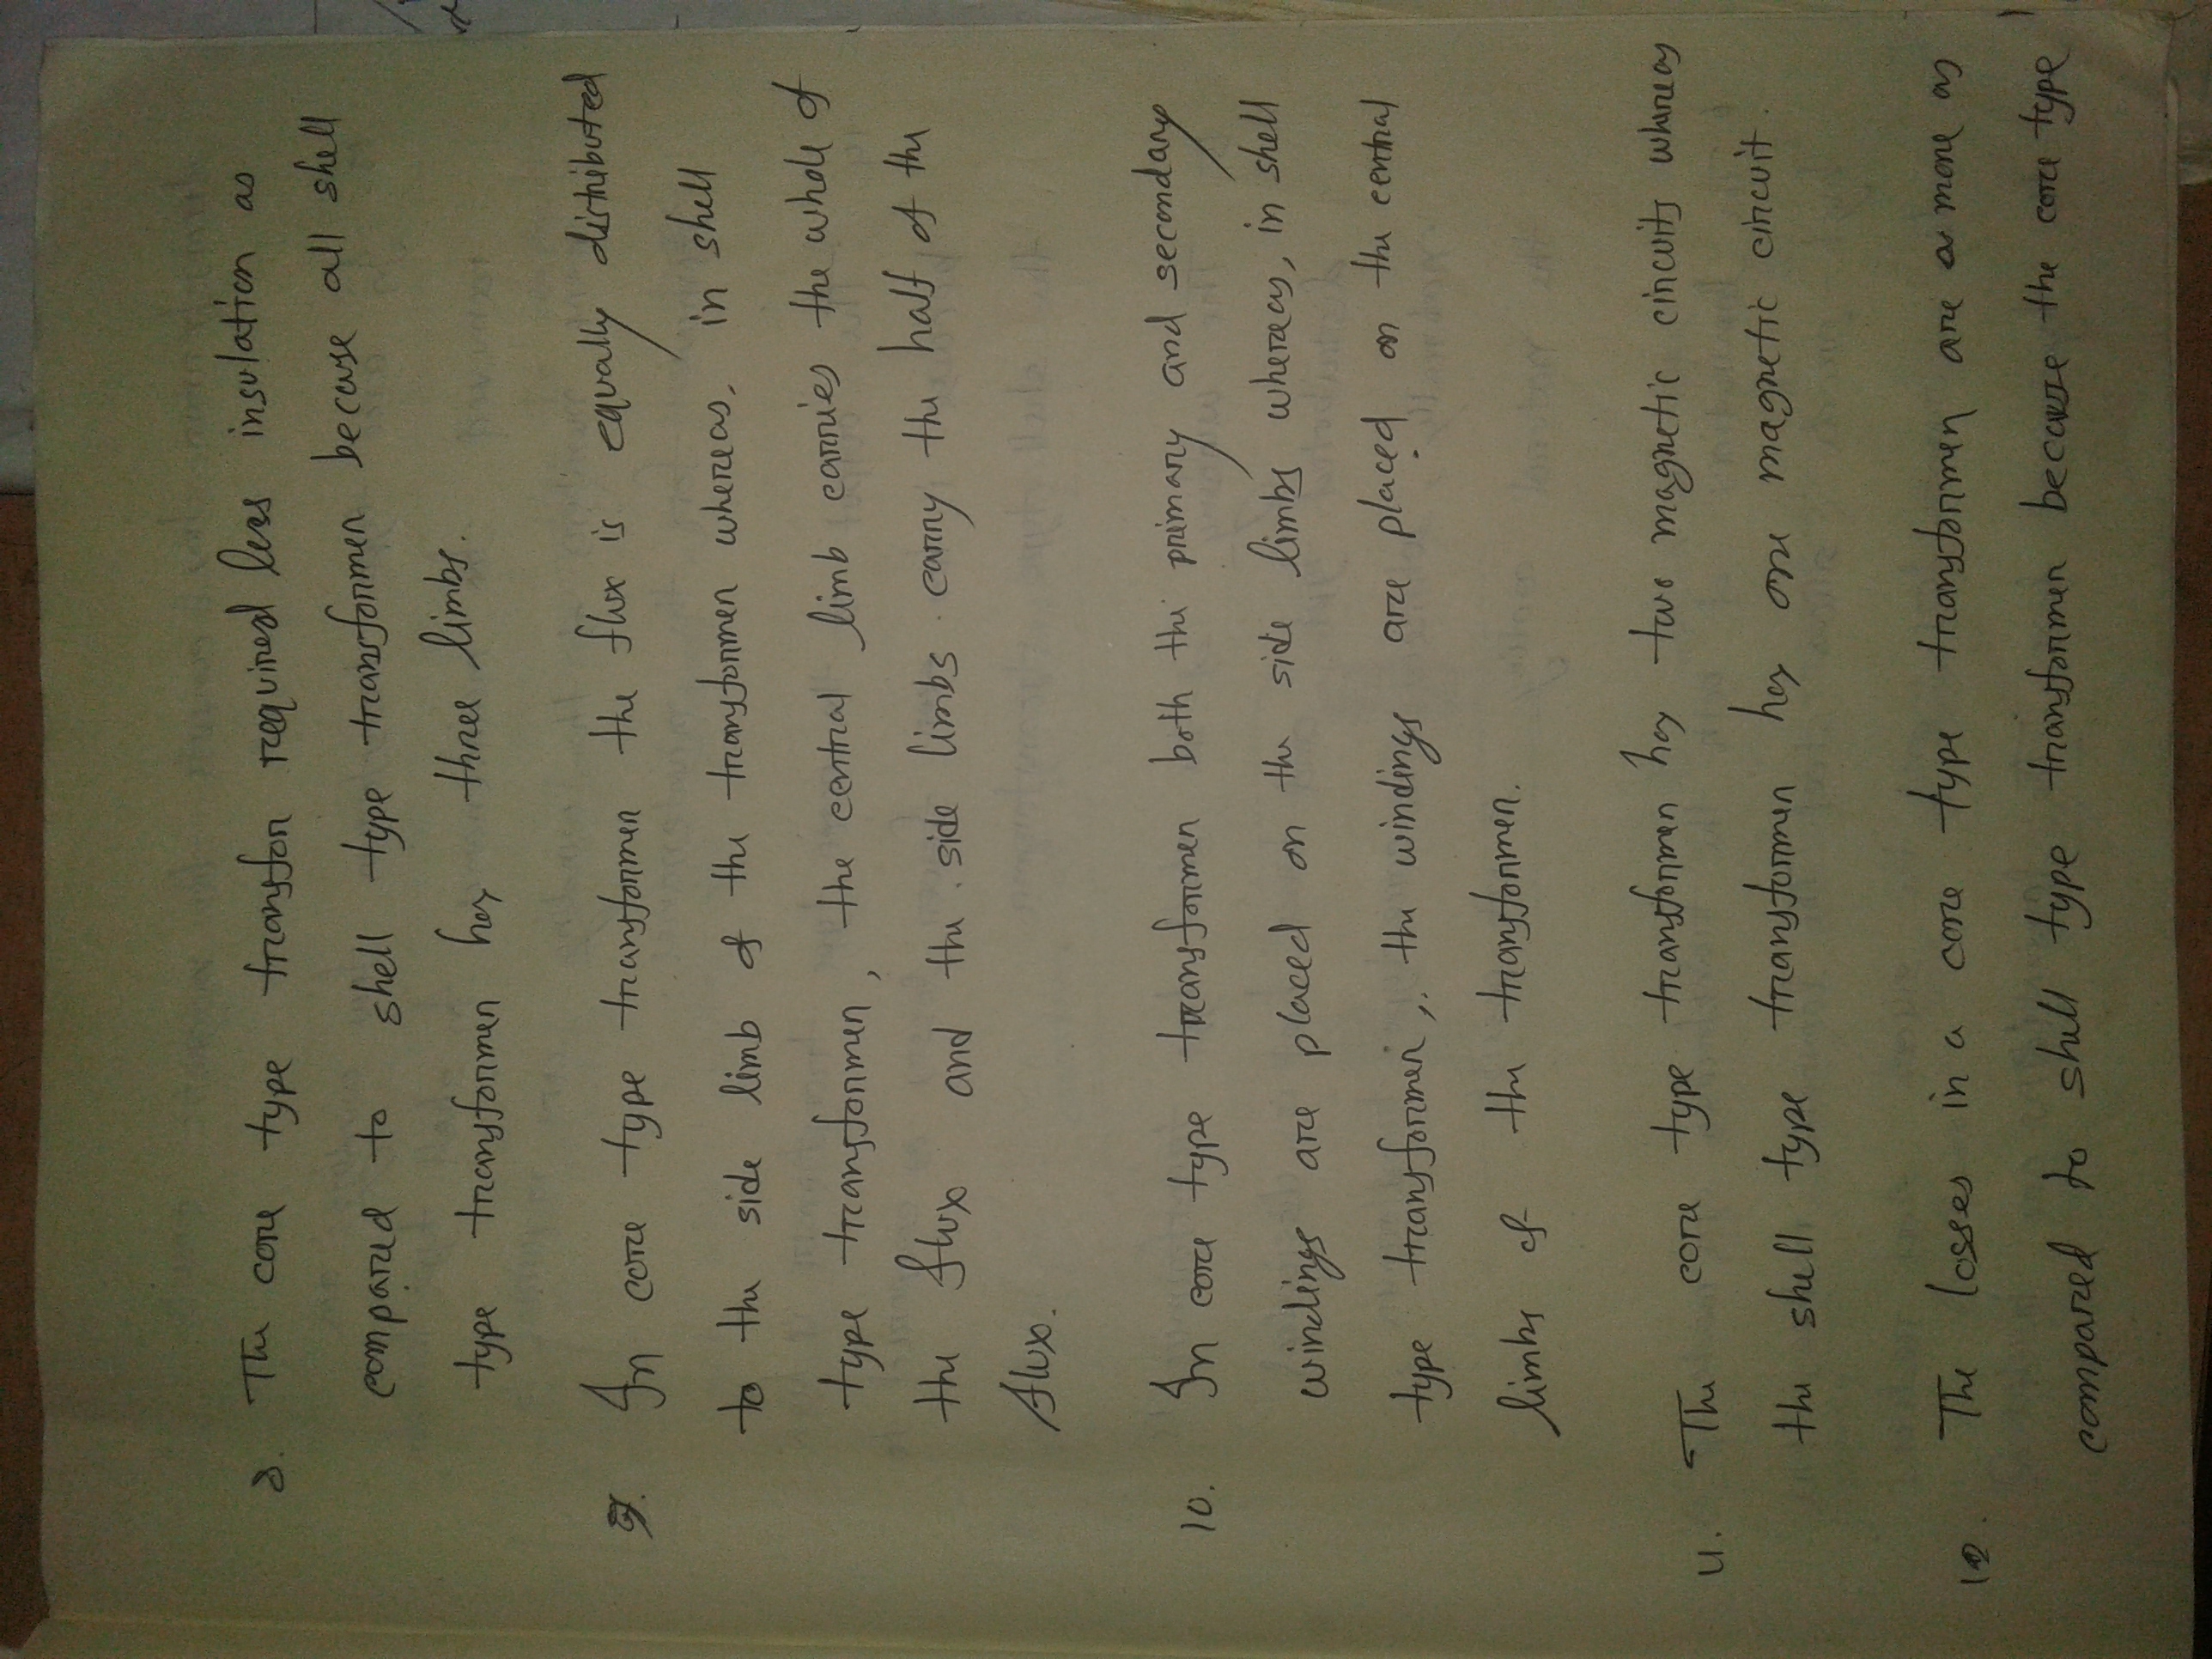 8. The core type transfor required less insulation as
compared to shell type transformer because all shell
type transformer has three limbs.
9. In core type transformer the flux is equally distributed
to the side limb of the transformer whereas, in shell
type transformer, the central limb carries the whole of
the flux and the side limbs carry the half of the
flux.
10. In core type transformer both the primary and secondary
windings are placed on the side limbs whereas, in shell
type transformer, the windings are placed on the central
limbs of the transformer.
11. The core type transformer has two magnetic circuits whereas
the shell type transformer has one magnetic circuit.
12. The losses in a core type transformer are more as
compared to shell type transformer because the core type